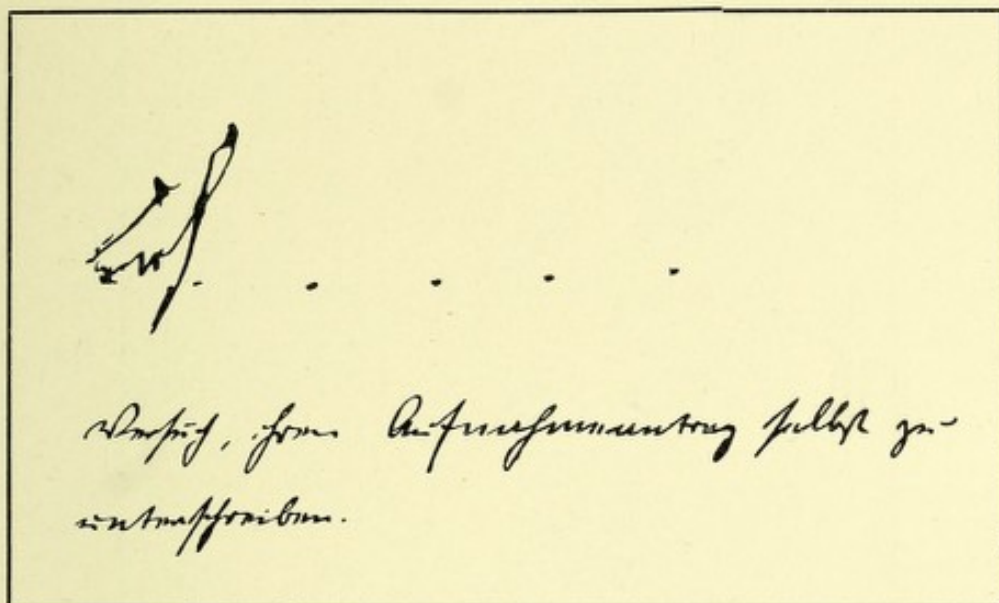 Versuch, ihren Aufnahmeantrag selbst zu
unterschreiben.